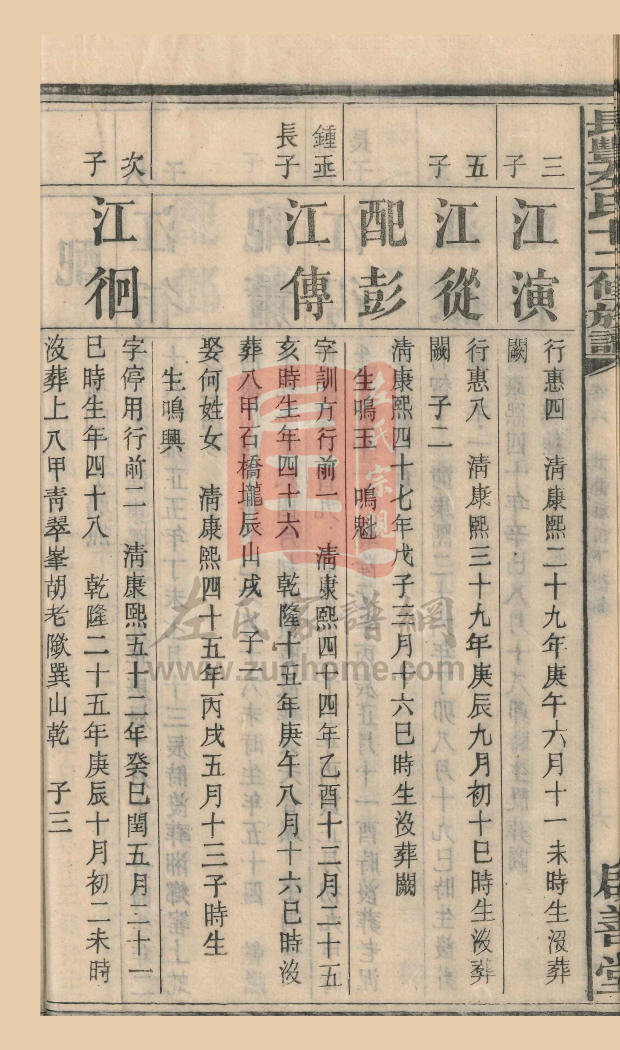 三子
江演
行惠四 清康熙二十九年庚午六月十一未時生沒葬
闕
五子
江從
行惠八 清康熙三十九年庚辰九月初十巳時生沒葬
闕 子二
配彭
清康熙四十七年戊子三月十六巳時生沒葬闕
生鳴玉 鳴魁
鍾丞長子
江傳
字訓方行前一 清康熙四十四年乙酉十二月二十五
亥時生年四十六 乾隆十五年庚午八月十六巳時沒
葬八甲石橋壠辰山戌 子一
娶何姓女 清康熙四十五年丙戌五月十三子時生
生鳴興
次子
江徊
字停用行前二 清康熙五十二年癸巳閏五月二十一
巳時生年四十八 乾隆二十五年庚辰十月初二未時
沒葬上八甲靑翠峯胡老墩巽山乾 子三
左氏宗親
左氏家譜網
www.zuqhome.com
啟善堂